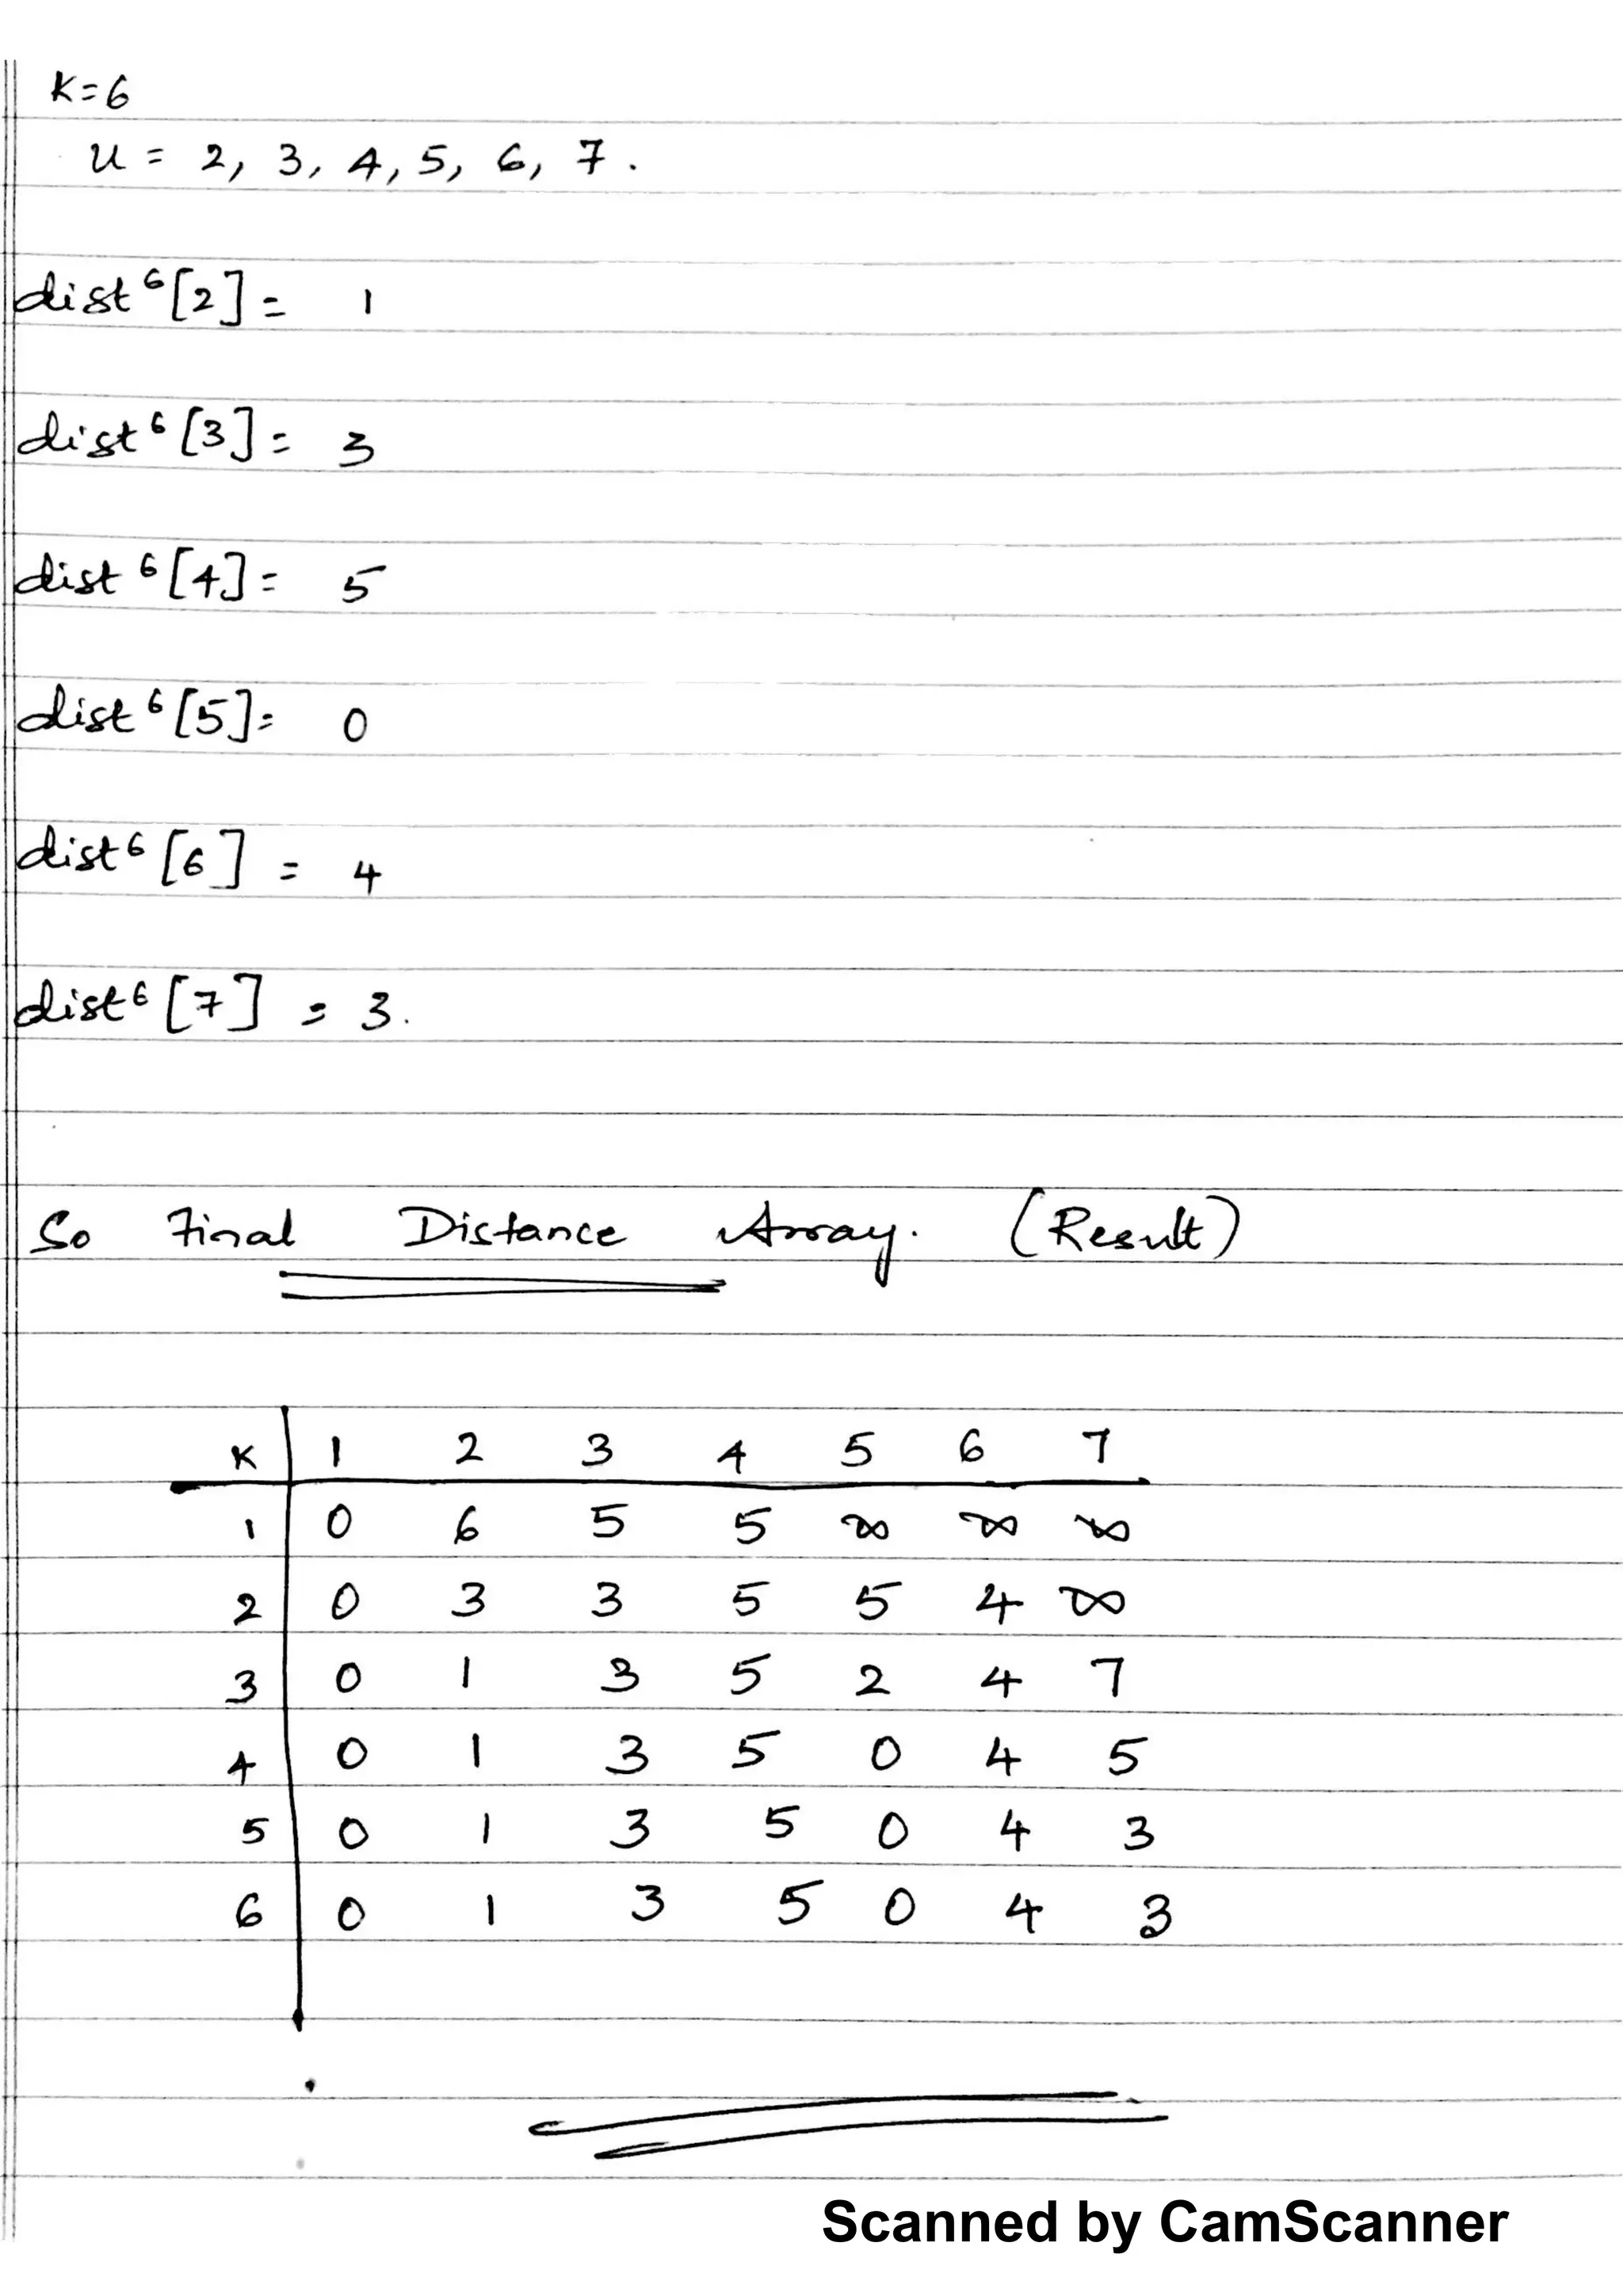 K=6
u = 2, 3, 4, 5, 6, 7.
dist⁶[2] = 1
dist⁶[3] = 3
dist⁶[4] = 5
dist⁶[5] = 0
dist⁶[6] = 4
dist⁶[7] = 3.
So Final Distance Array. (Result)
K 1 2 3 4 5 6 7
1 0 6 5 5 ∞ ∞ ∞
2 0 3 3 5 5 4 ∞
3 0 1 3 5 2 4 7
4 0 1 3 5 0 4 5
5 0 1 3 5 0 4 3
6 0 1 3 5 0 4 3
Scanned by CamScanner